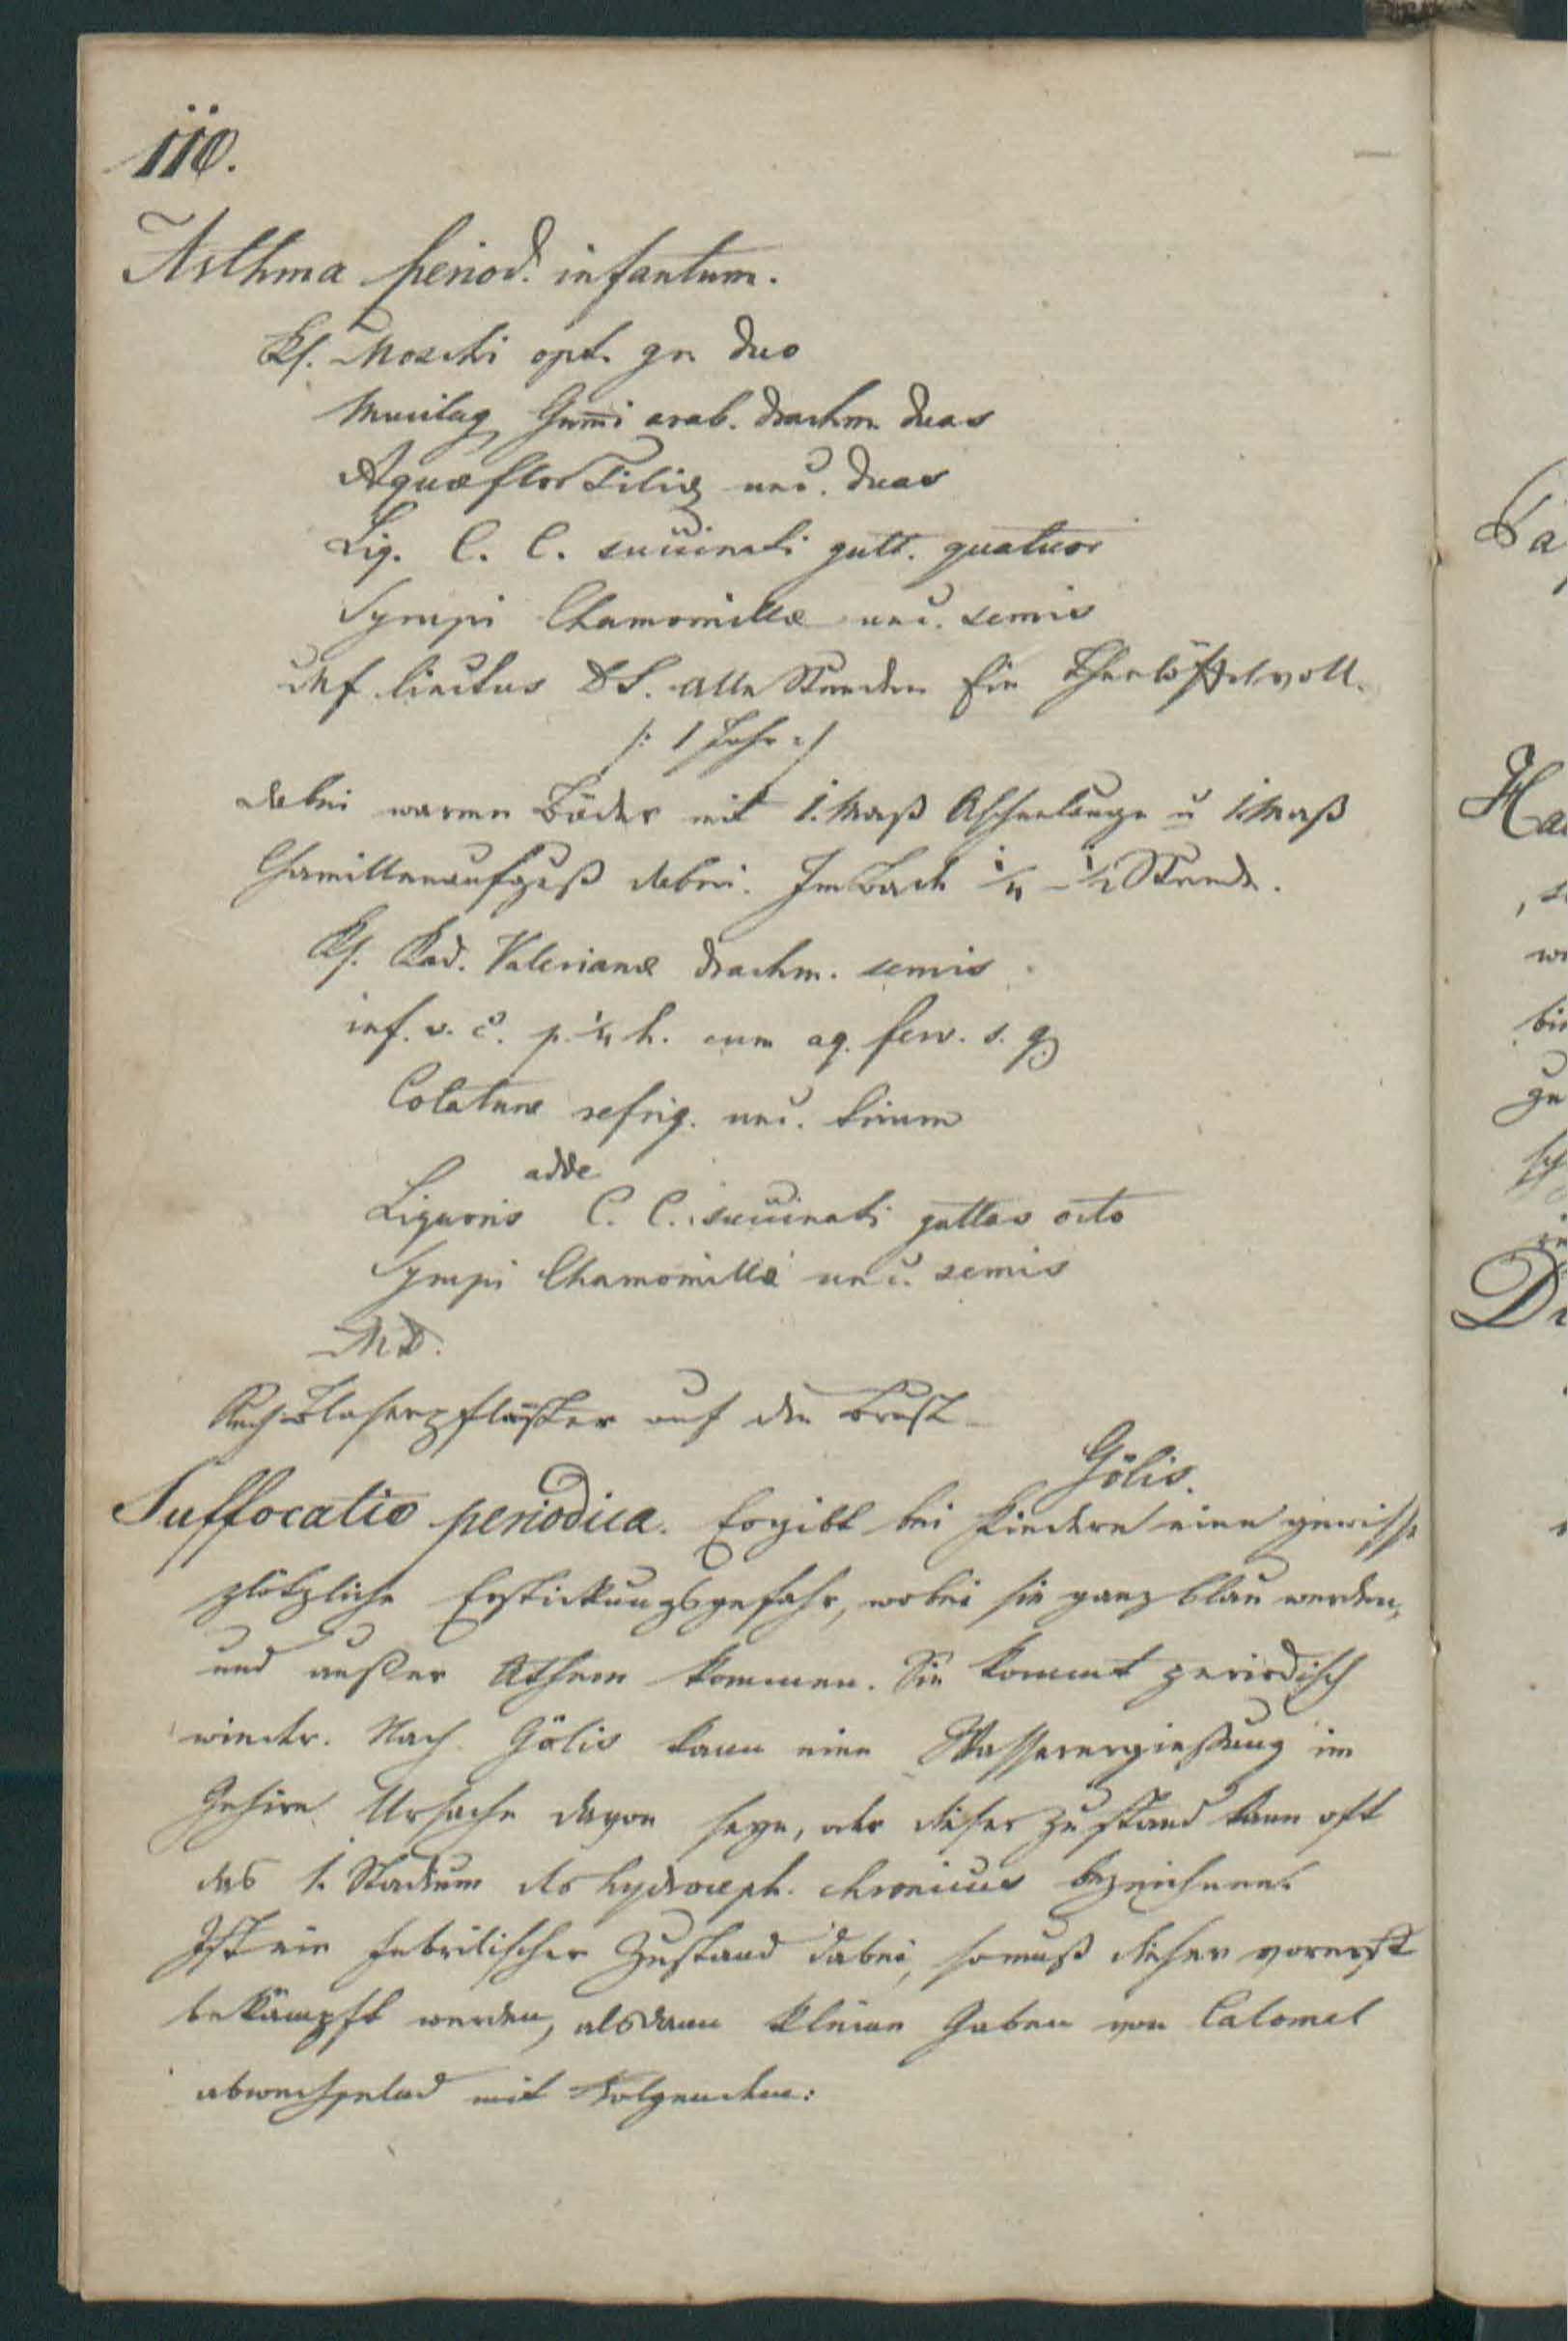 110.
Asthma period. infantum.
Rf. Moschi opt. gr. duo
Mucilag Gum̅i arab. drachm. duas
Aquæ flor Tiliæ unc. duas
Liq. C. C. succinati gutt. quatuor
Syrupi Chamomillæ unc. semis
Mf linctus DS. Alle Stunden Ein Theelöffelvoll.
/: 1 Jahr :/
dabei warme Bäder mit 1. Maß Aschenlauge u 1. Maß
Chamillenaufguß dabei. Im Bade ¼ – ½ Stunde.
Rf. Rad. Valerianæ drachm. semis
inf. v. c. p. ¼ h. cum aq. ferv. s. q.
Colaturæ refrig. unc. trium
adde
Liquoris C. C. succinati guttas octo
Syrupi Chamomillæ unc. semis
MD.
Auch Blasenpflaster auf die Brust
Gölis.
Suffocatio periodica. Es gibt bei Kindern eine gewisse
plötzliche Erstickungsgefahr, wobei sie ganz blau werden,
und außer Athem kommen. Sie kommt periodisch
wieder. Nach Gölis kann eine Wasserergießung im
Gehirn Ursache davon seyn, oder dieser Zustand kann oft
das 1. Stadium des hydroceph. chronicus bezeichnen.
Ist ein febrilischer Zustand dabei, so muß dieser vorerst
bekämpft werden, alsdann kleine Gaben von Calomel
abwechselnd mit Folgendem: